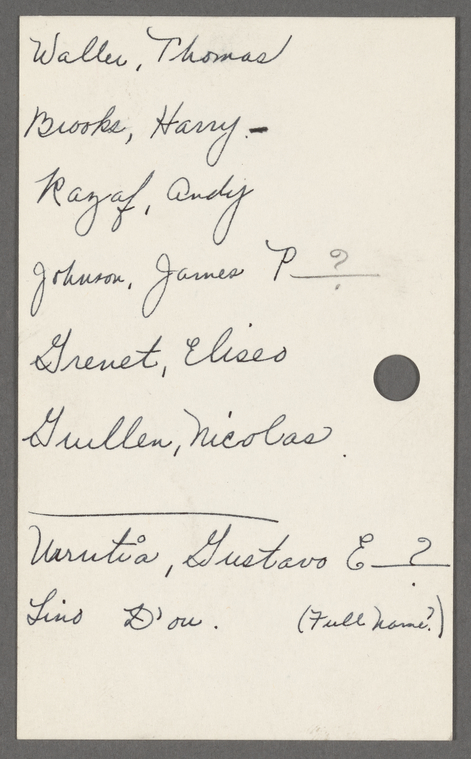 Waller, Thomas
Brooks, Harry -
Razaf, Andy
Johnson, James P ?
Grenet, Eliseo
Guillen, Nicolas.
Urrutia, Gustavo E ?
Lino D'ou. (Full Name?)